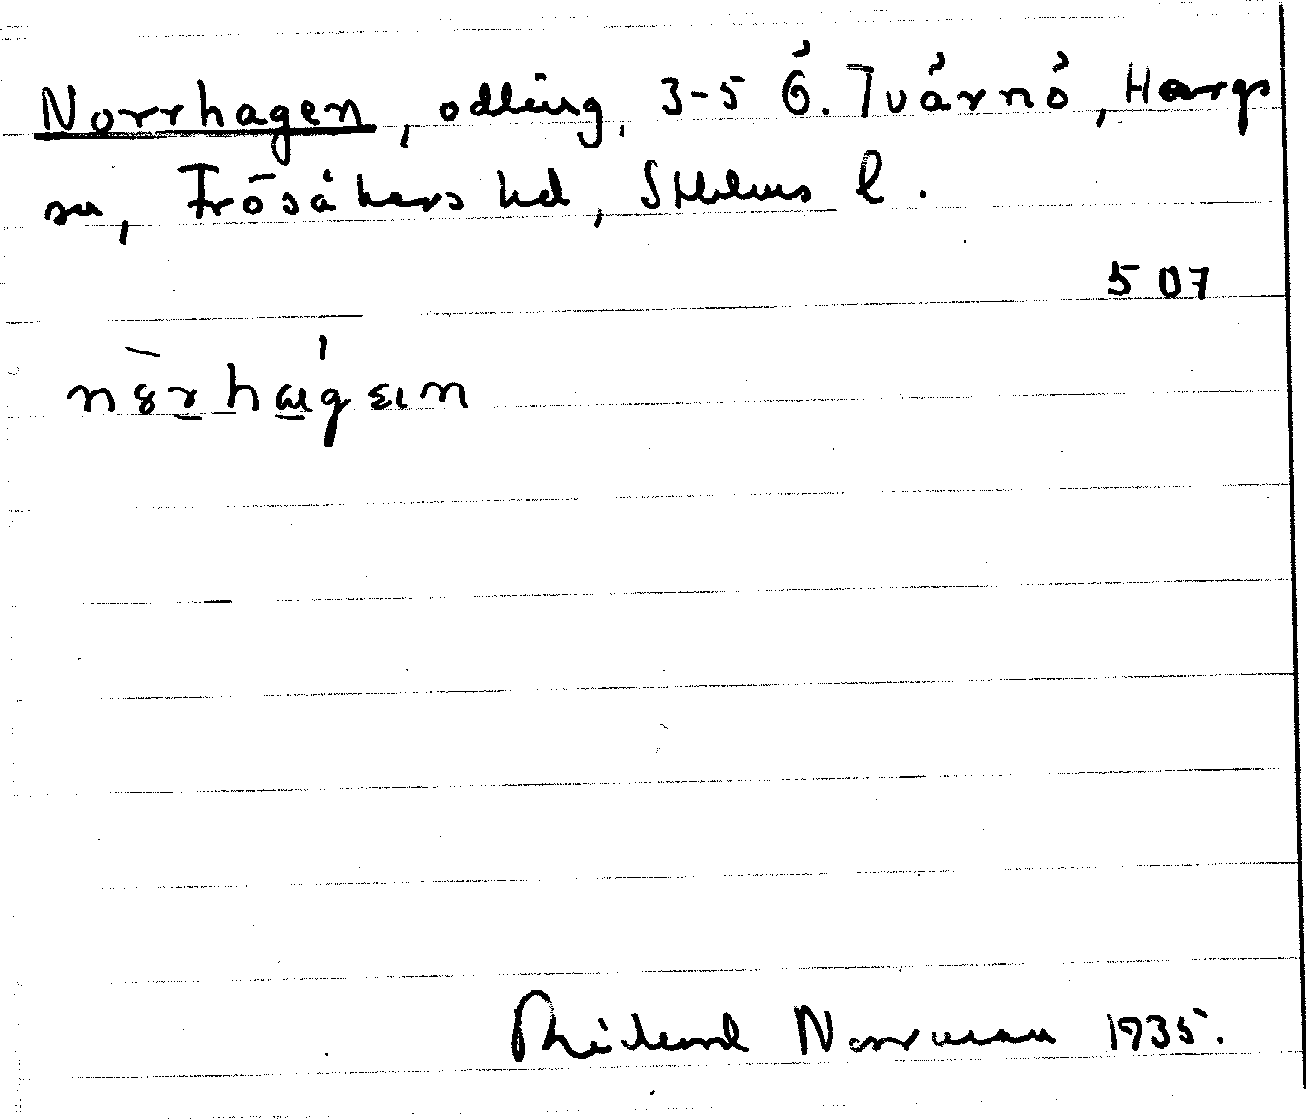 Norrhagen, odling, 3-5 Ö. Tvärnö, Hargs
sn, Frösåkers hd, Sthlms l.
507
Rikard Norrman 1935.